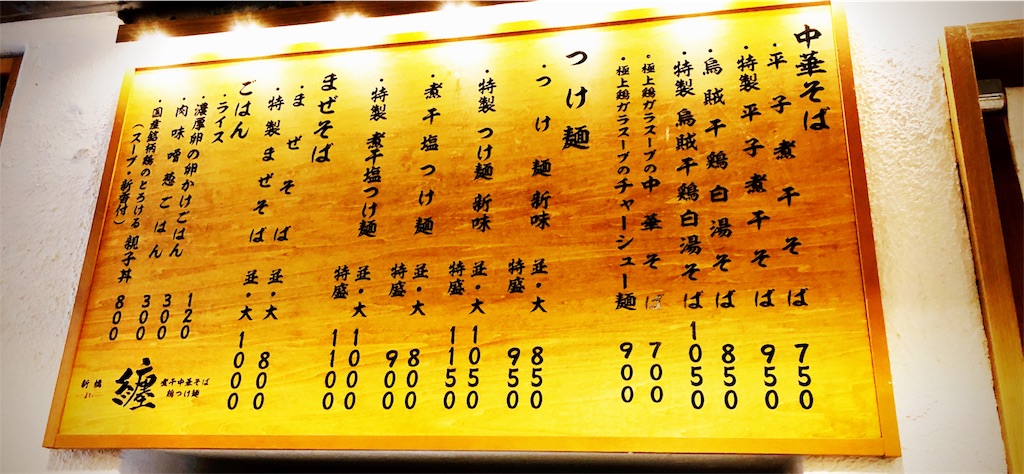 中華そば
・平子煮干そば 750
・特製平子煮干そば 950
・烏賊干鶏白湯そば 850
・特製烏賊干鶏白湯そば 1050
・極上鶏ガラスープの中華そば 700
・極上鶏ガラスープのチャーシュー麺 900
つけ麺
・つけ麺新味 並・大 850
特盛 950
・特製つけ麺新味 並・大 1050
特盛 1150
・煮干塩つけ麺 並・大 800
特盛 900
・特製煮干塩つけ麺 並・大 1000
特盛 1100
まぜそば
・まぜそば 並・大 800
・特製まぜそば 並・大 1000
ごはん
・ライス 120
・濃厚卵の卵かけごはん 300
・肉味噌葱ごはん 300
・国産銘柄鶏のとろける親子丼 800
（スープ・新香付）
新橋
纏
煮干中華そば
鶏つけ麺